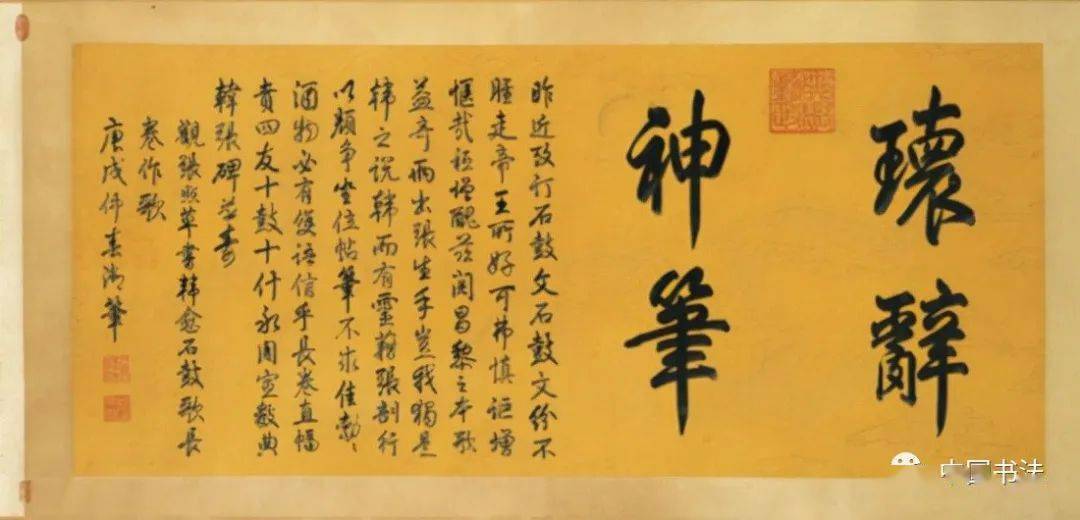 瓌辭
神筆
昨近考訂石鼓文石鼓文紛不
脛走帝王所好可弗慎詎增
惬哉祗增醜茲閱昌黎之本歌
益奇而出張生手豈我獨是
韓之說韓而有靈務張剖行
以顏爭坐位帖筆不求佳勸〻
酒物必有雙語信乎長卷直幅
貴四友十鼓十什永周宣數典
韓張碑並壽
觀張照草書韓愈石鼓歌長
卷作歌
庚戌仲春御筆
中国书法